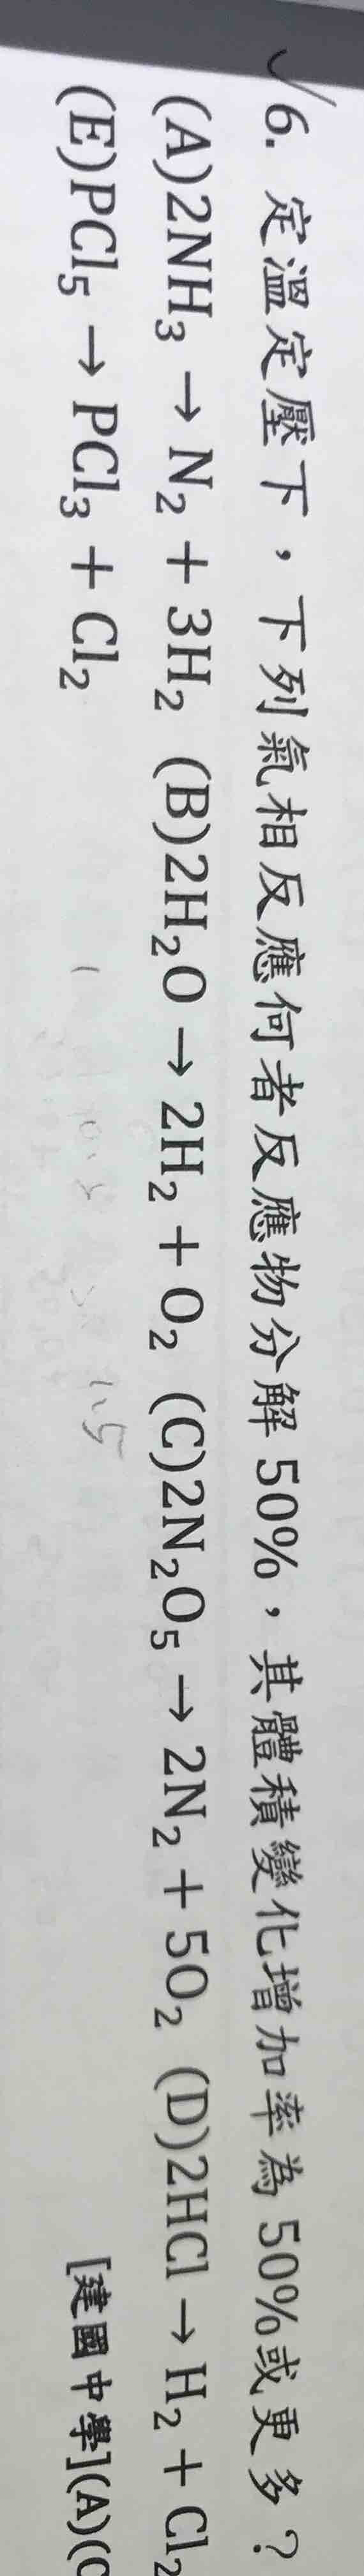 √6. 定溫定壓下，下列氣相反應何者反應物分解 50%，其體積變化增加率為 50%或更多？
(A)2NH₃ → N₂ + 3H₂ (B)2H₂O → 2H₂ + O₂ (C)2N₂O₅ → 2N₂ + 5O₂ (D)2HCl → H₂ + Cl₂
(E)PCl₅ → PCl₃ + Cl₂
1.5
[建國中學](A)(C